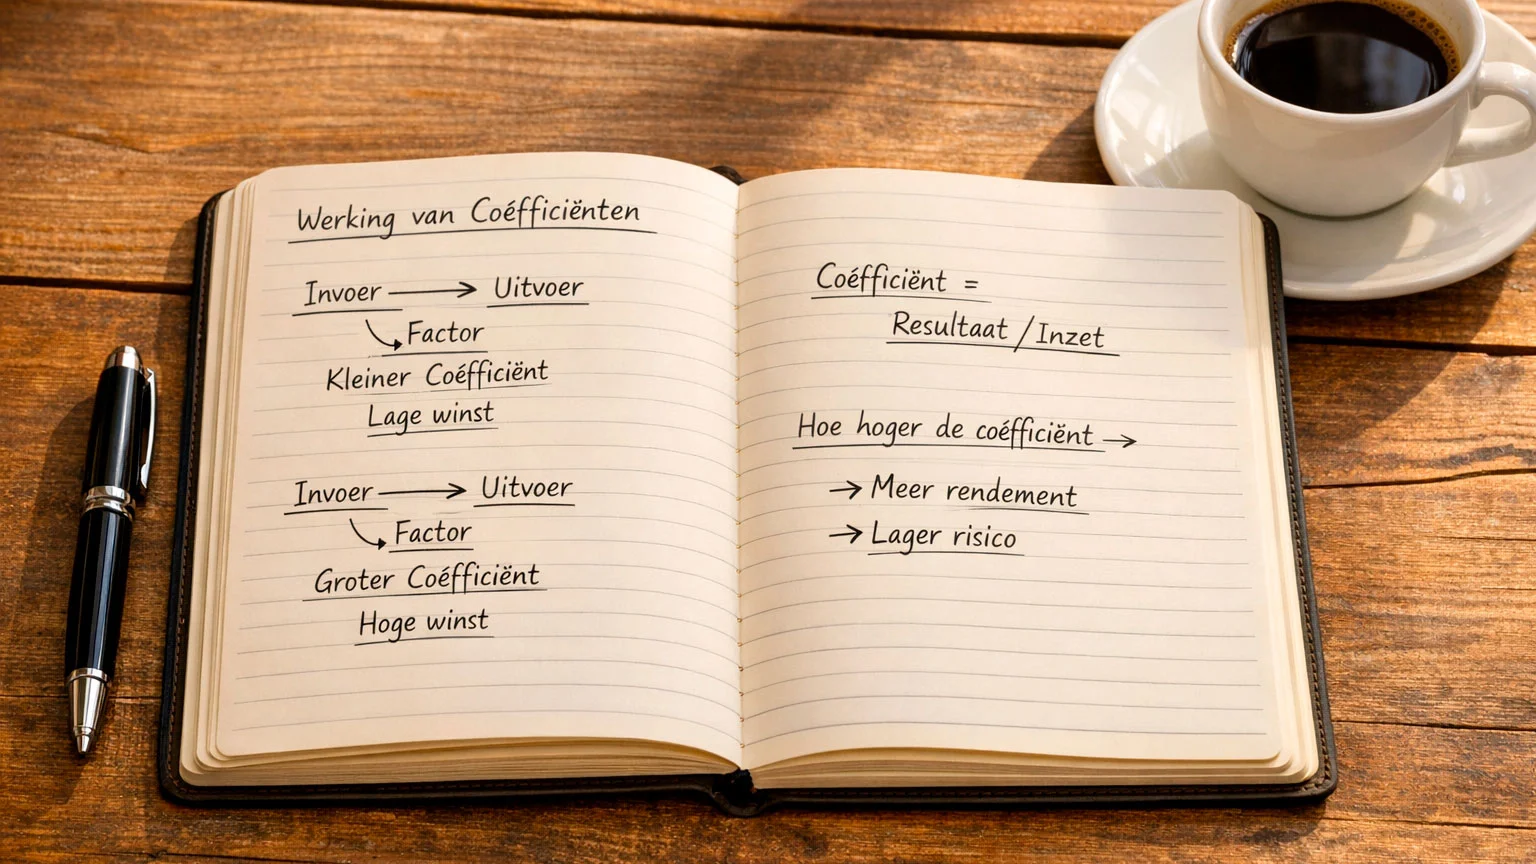 Werking van Coéfficiënten
Invoer → Uitvoer
Factor
Kleiner Coéfficiënt
Lage winst
Invoer → Uitvoer
Factor
Groter Coéfficiënt
Hoge winst
Coéfficiënt =
Resultaat / Inzet
Hoe hoger de coéfficiënt →
→ Meer rendement
→ Lager risico